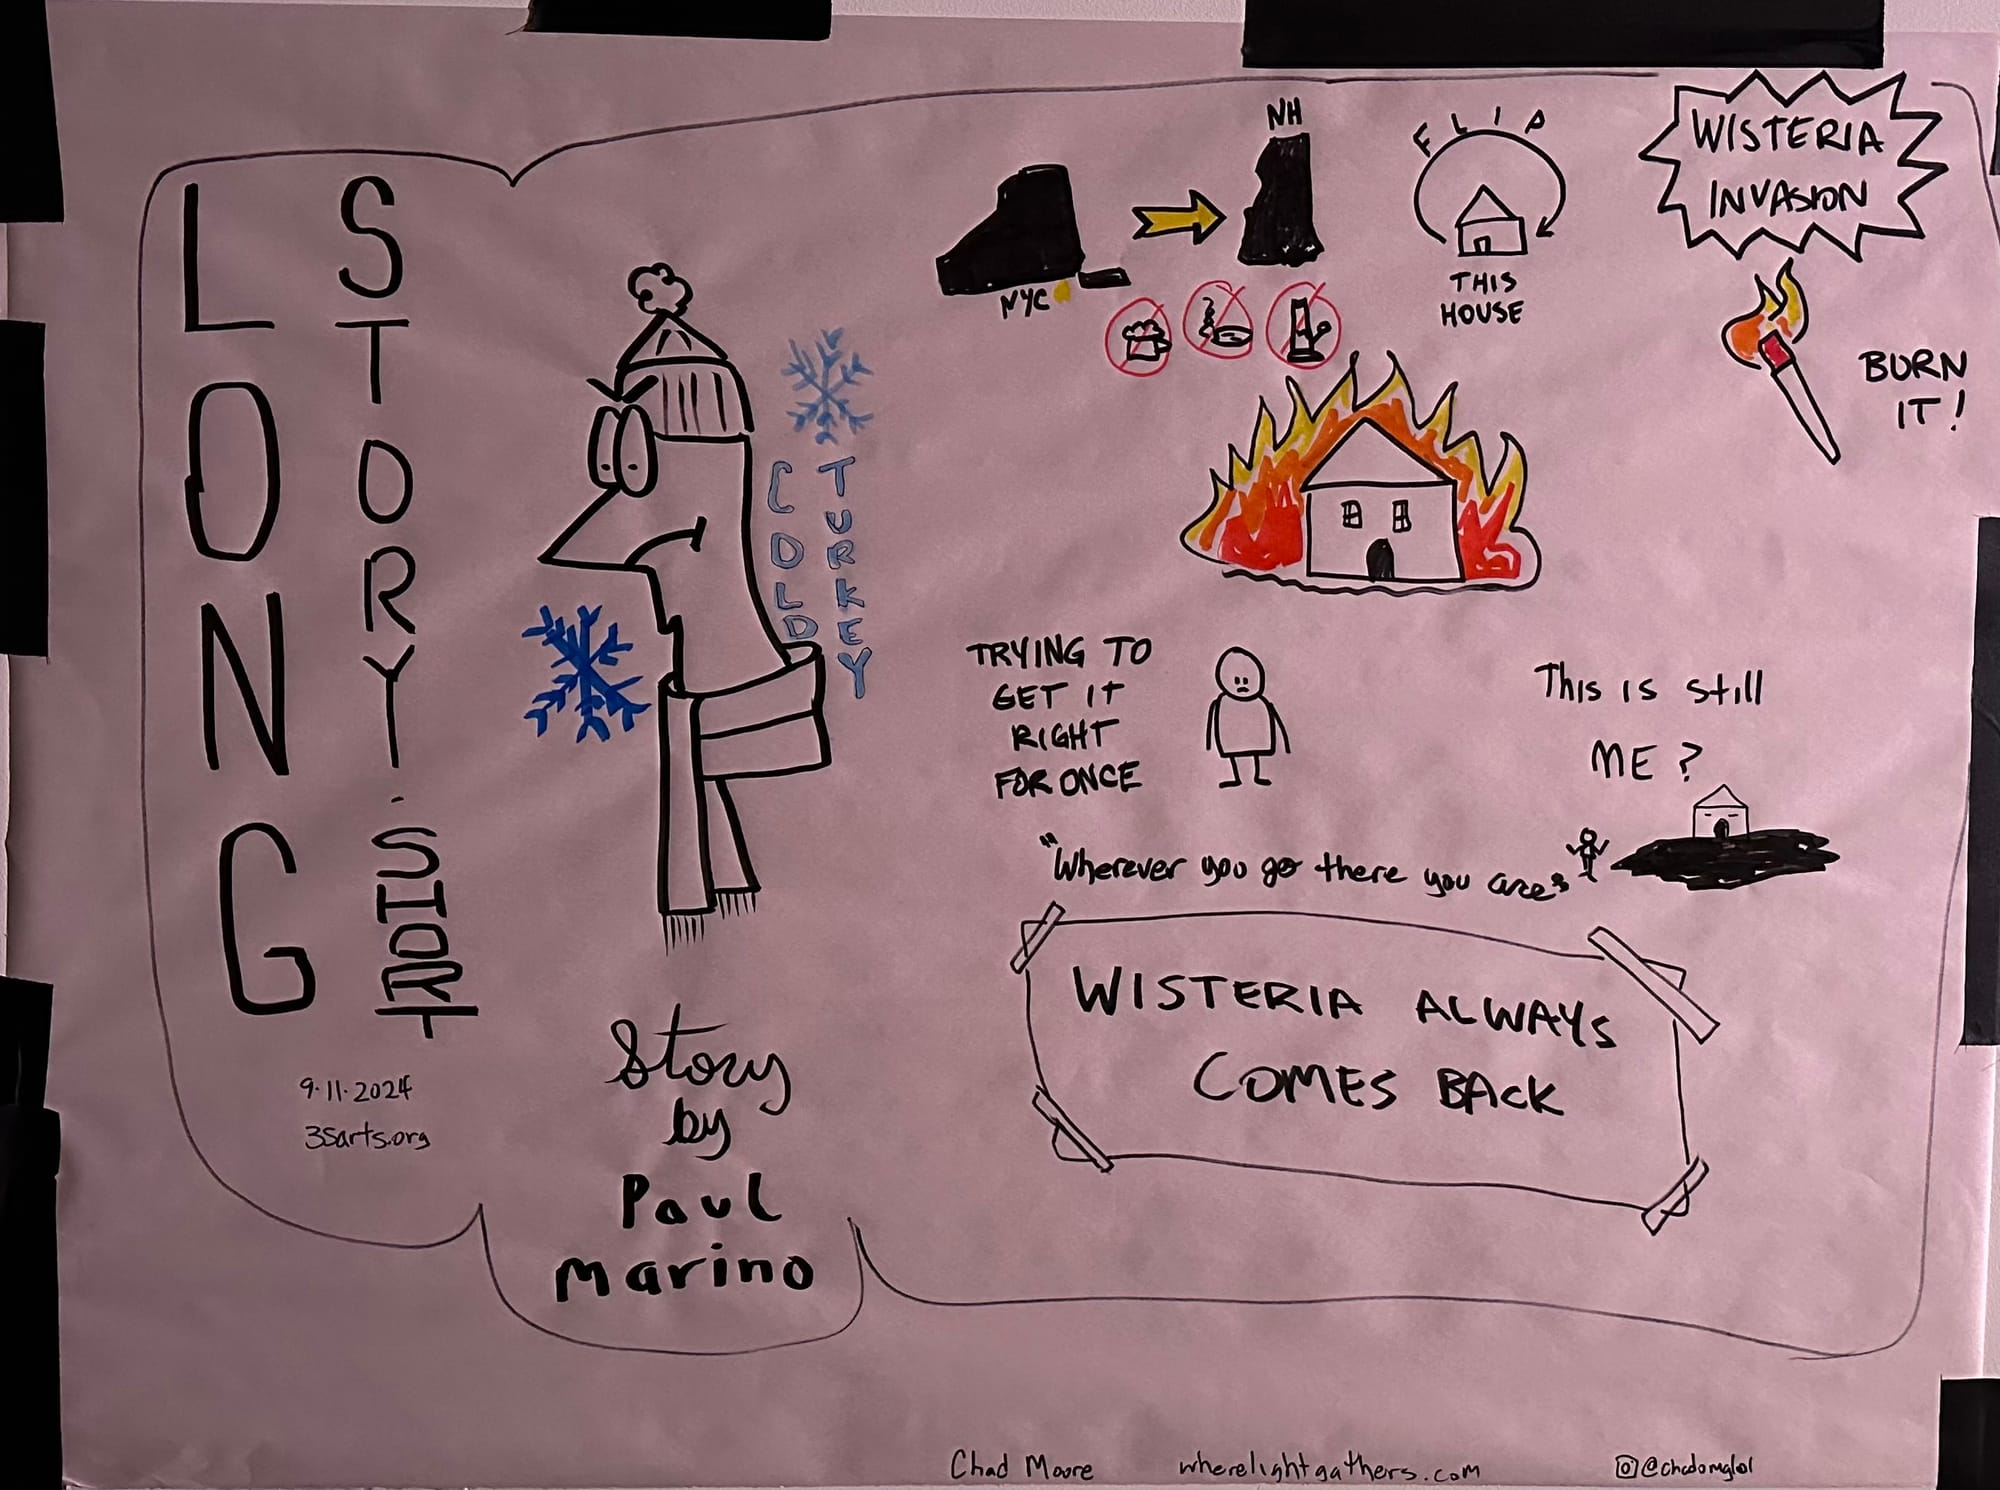 LONG
STORY.SHORT
9.11.2024
3Sarts.org
COLD
TURKEY
Story
by
Paul
Marino
NYC
NH
FLIP
THIS
HOUSE
WISTERIA
INVASION
BURN
IT!
TRYING TO
GET IT
RIGHT
FOR ONCE
This is still
ME?
"Wherever you go there you are"
WISTERIA ALWAYS
COMES BACK
Chad Moore
wherelightgathers.com
@chadomglol